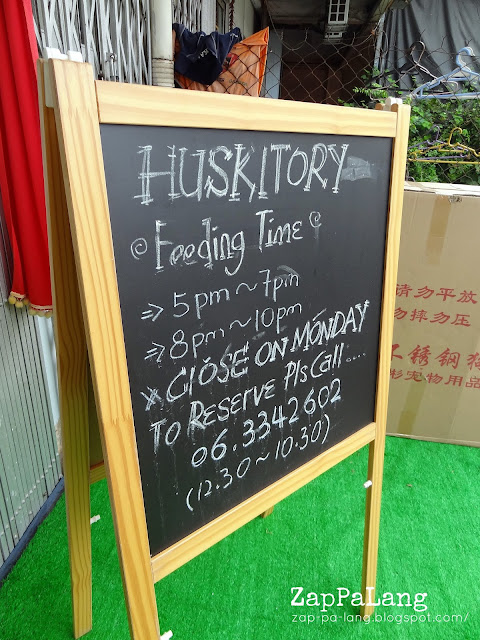 HUSKITORY
Feeding Time
⇒ 5pm ~ 7pm
⇒ 8pm ~ 10pm
* CLOSE ON MONDAY
TO RESERVE Pls Call ....
06.3342602
(12.30 ~ 10.30)
请勿平放
勿摔勿压
不锈钢狗
宠物用品
ZapPaLang
zap-pa-lang.blogspot.com/